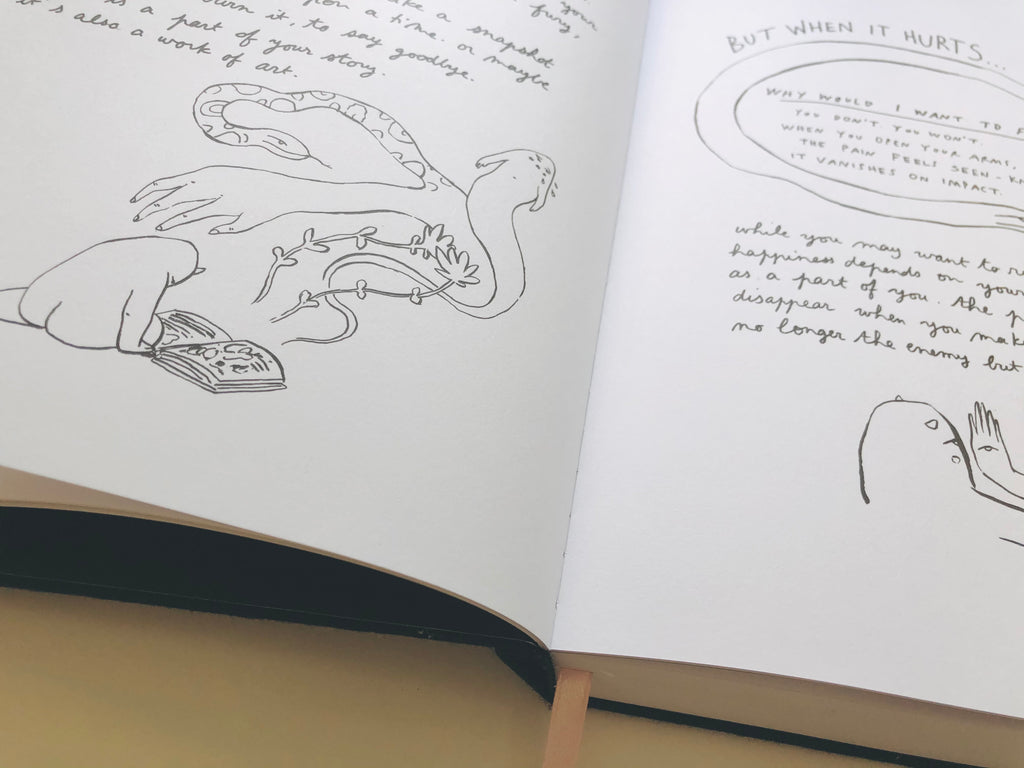 your
ake a fury,
burn it, to snapshot
pon a time. or maybe
is a part of say goodbye.
it's also a work of your story.
of art.
BUT WHEN IT HURTS...
WHY WOULD I WANT TO F
YOU DON'T. YOU WON'T.
WHEN YOU OPEN YOUR ARMS,
THE PAIN FEELS SEEN - K
IT VANISHES ON IMPACT.
while you may want to r
happiness depends on your
as a part of you. the p
disappear when you make
no longer the enemy but